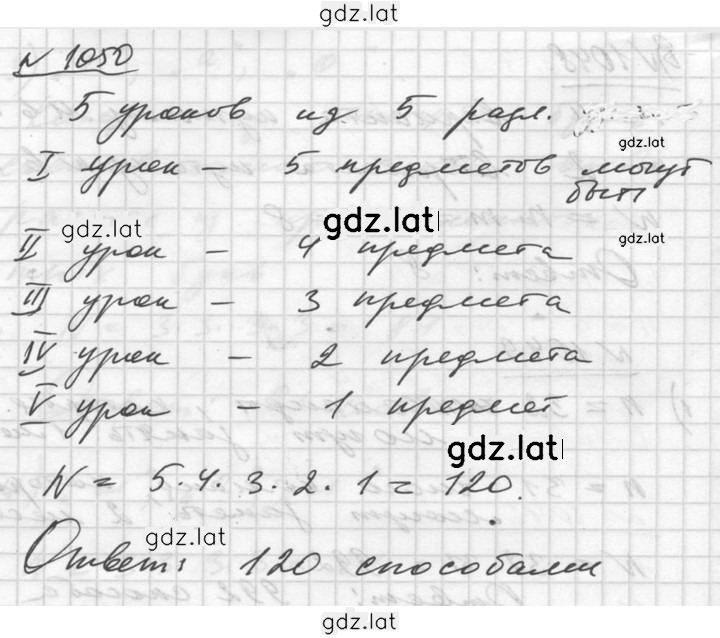 gdz.lat
N 1050
5 уроков из 5 разл.
gdz.lat
I урок – 5 предметов могут
быть
gdz.lat
gdz.lat
gdz.lat
II урок – 4 предмета
III урок – 3 предмета
IV урок – 2 предмета
V урок – 1 предмет
gdz.lat
N = 5·4·3·2·1 = 120.
gdz.lat
Ответ: 120 способами
gdz.lat